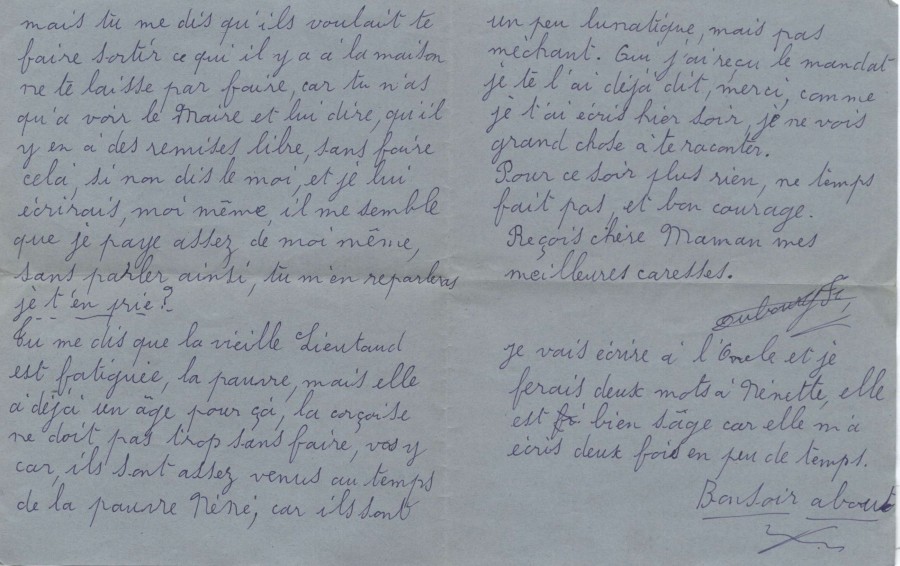 mais tu me dis qu'ils voulait te
faire sortir ce qui il y a à la maison
ne te laisse par faire, car tu n'as
qu'a voir le Maire et lui dire, qu'il
y en à des remises libre, sans faire
cela, si non dis le moi, et je lui
écrirais, moi même, il me semble
que je paye assez de moi même,
sans parler ainsi, tu m'en reparleras
je t'en prie?
Tu me dis que la vieille Lieutaud
est fatiguée, la pauvre, mais elle
a déjà un âge pour çà, la corçoise
ne doit pas trop sans faire, vas y
car, ils sont assez venus au temps
de la pauvre Néné, car ils sont
un peu lunatique, mais pas
méchant. Oui j'ai reçu le mandat
je te l'ai déjà dit, merci, comme
je t'ai écris hier soir, je ne vois
grand chose à te raconter.
Pour ce soir plus rien, ne temps
fait pas, et bon courage.
Reçois chère Maman mes
meilleures caresses.
Je vais écrire à l'Oncle et je
ferais deux mots à Nénette, elle
est bien sâge car elle m'a
écris deux fois en peu de temps.
Bonsoir a bout